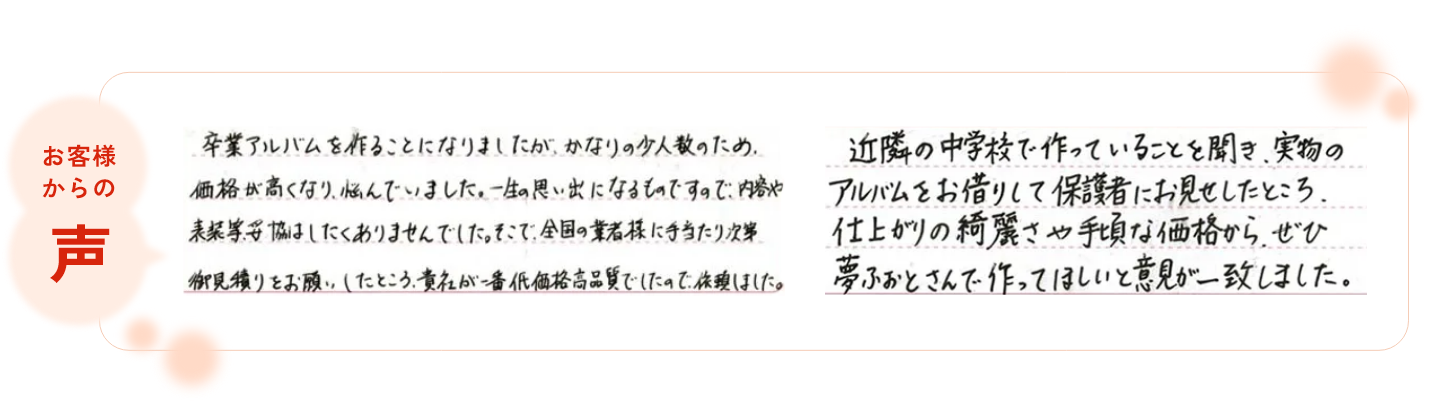 お客様
からの
声
卒業アルバムを作ることになりましたが、かなりの少人数のため、
価格が高くなり、悩んでいました。一生の思い出になるものですので、内容や
表装等妥協はしたくありませんでした。そこで、全国の業者様に手当たり次第
御見積りをお願いしたところ、貴社が一番低価格高品質でしたので、依頼しました。
近隣の中学校で作っていることを聞き、実物の
アルバムをお借りして保護者にお見せしたところ、
仕上がりの綺麗さや手頃な価格から、ぜひ
夢ふぉとさんで作ってほしいと意見が一致しました。